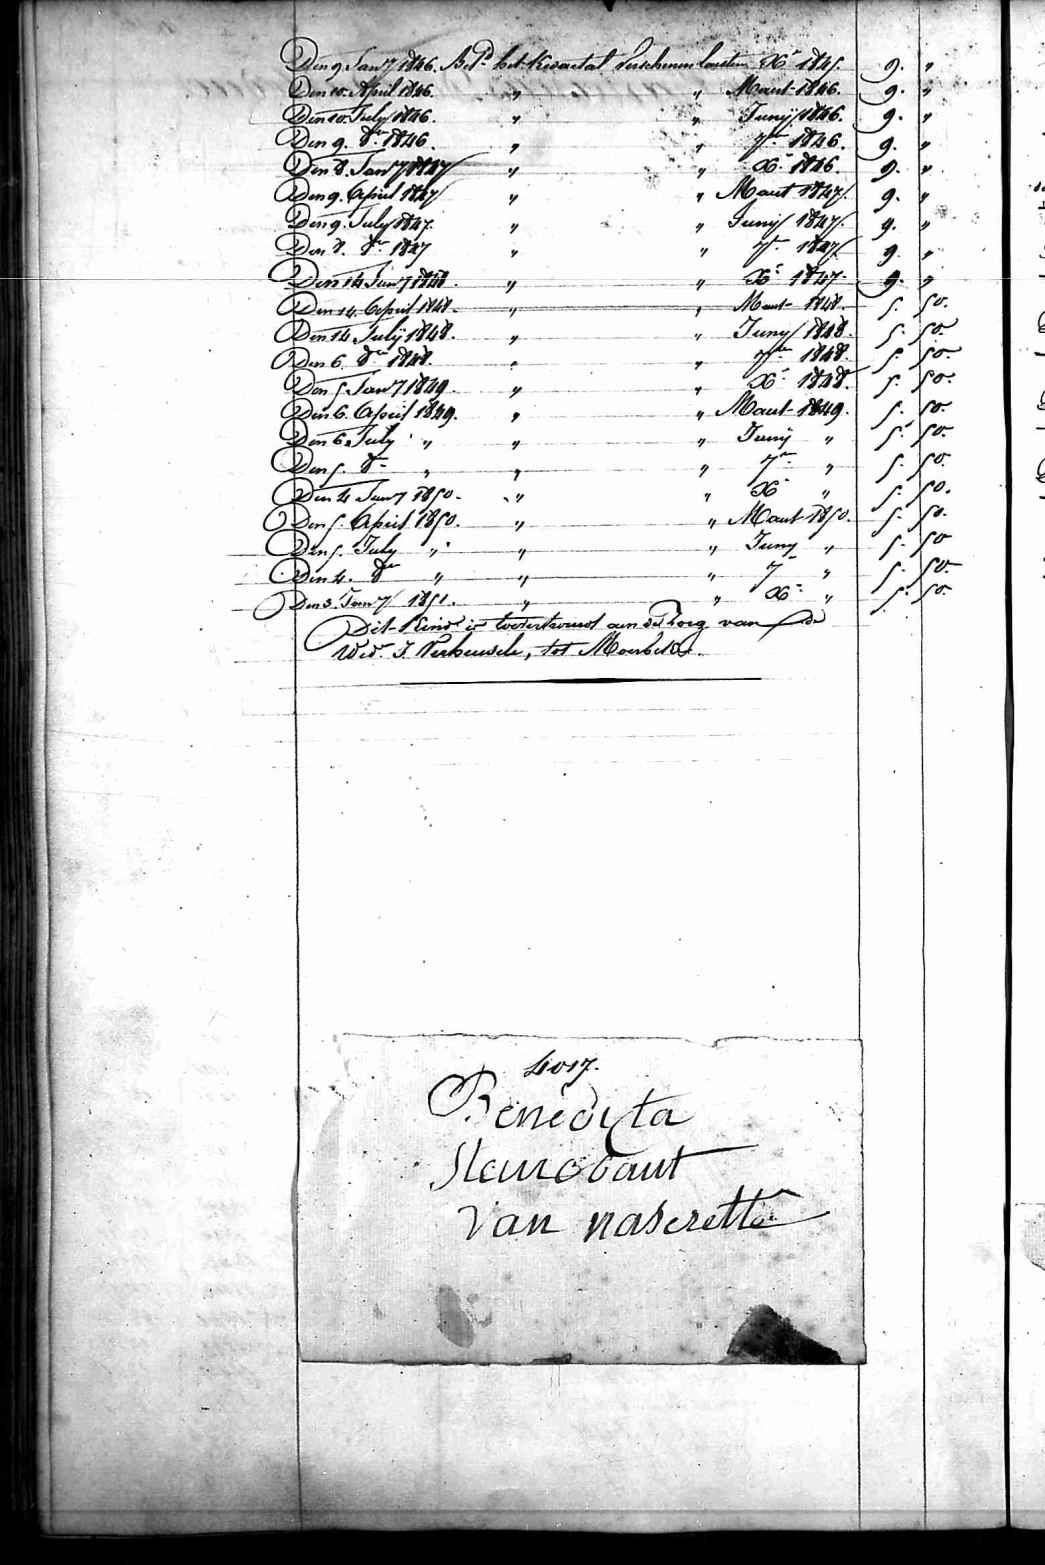 Den 9. Jan^y 1846. Bet^d het kwartal verschenen laatsten X^r 1845. 9. "
Den 10. April 1846. " " Maart 1846. 9. "
Den 10. July 1846. " " Junij 1846. 9. "
Den 9. 8^er 1846. " " 7^er 1846. 9. "
Den 8. Jan^y 1847 " " X^r 1846 9. "
Den 9. April 1847 " " Maart 1847. 9. "
Den 9. July 1847. " " Junij 1847. 9. "
Den 8. 8^er 1847 " " 7^r 1847 9. "
Den 14 Jan^y 1848. " " X^r 1847. 9. "
Den 14. April 1848. " " Maart 1848. 5. 50.
Den 14 Julij 1848. " " Juny 1848. 5. 50.
Den 6. 8^er 1848. " " 7^er 1848. 5. 50.
Den 5 Jan^y 1849. " " X^r 1848. 5. 50.
Den 6. April 1849. " " Maart 1849. 5. 50.
Den 6 July " " " Junij " 5. 50.
Den 5. 8^r " " " 7^r " 5. 50.
Den 4 Jan^y 1850. " " X^r " 5. 50.
Den 5. April 1850. " " Maart 1850. 5. 50.
Den 5. July " " " Juny " 5. 50
Den 4. 8^er " " " 7^r " 5. 50.
Den 3. Jan^y 1851. " " X^r " 5. 50.
Dit Kind is toevertrouwd aan de zorg van de
Wed^e J. , tot Moerbeke.
4017.
Benedicta
van naserette